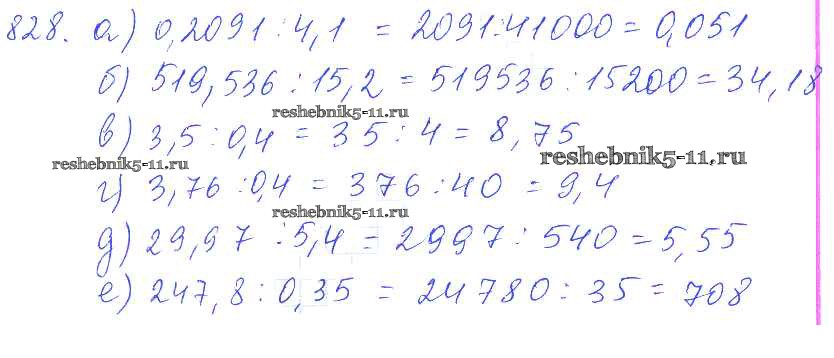 828. а) 0,2091 : 4,1 = 2091:41000 = 0,051
б) 519,536 : 15,2 = 519536 : 15200 = 34,18
reshebnik5-11.ru
в) 3,5 : 0,4 = 35 : 4 = 8,75
reshebnik5-11.ru
reshebnik5-11.ru
г) 3,76 : 0,4 = 376 : 40 = 9,4
reshebnik5-11.ru
д) 29,97 : 5,4 = 2997 : 540 = 5,55
е) 247,8 : 0,35 = 24780 : 35 = 708